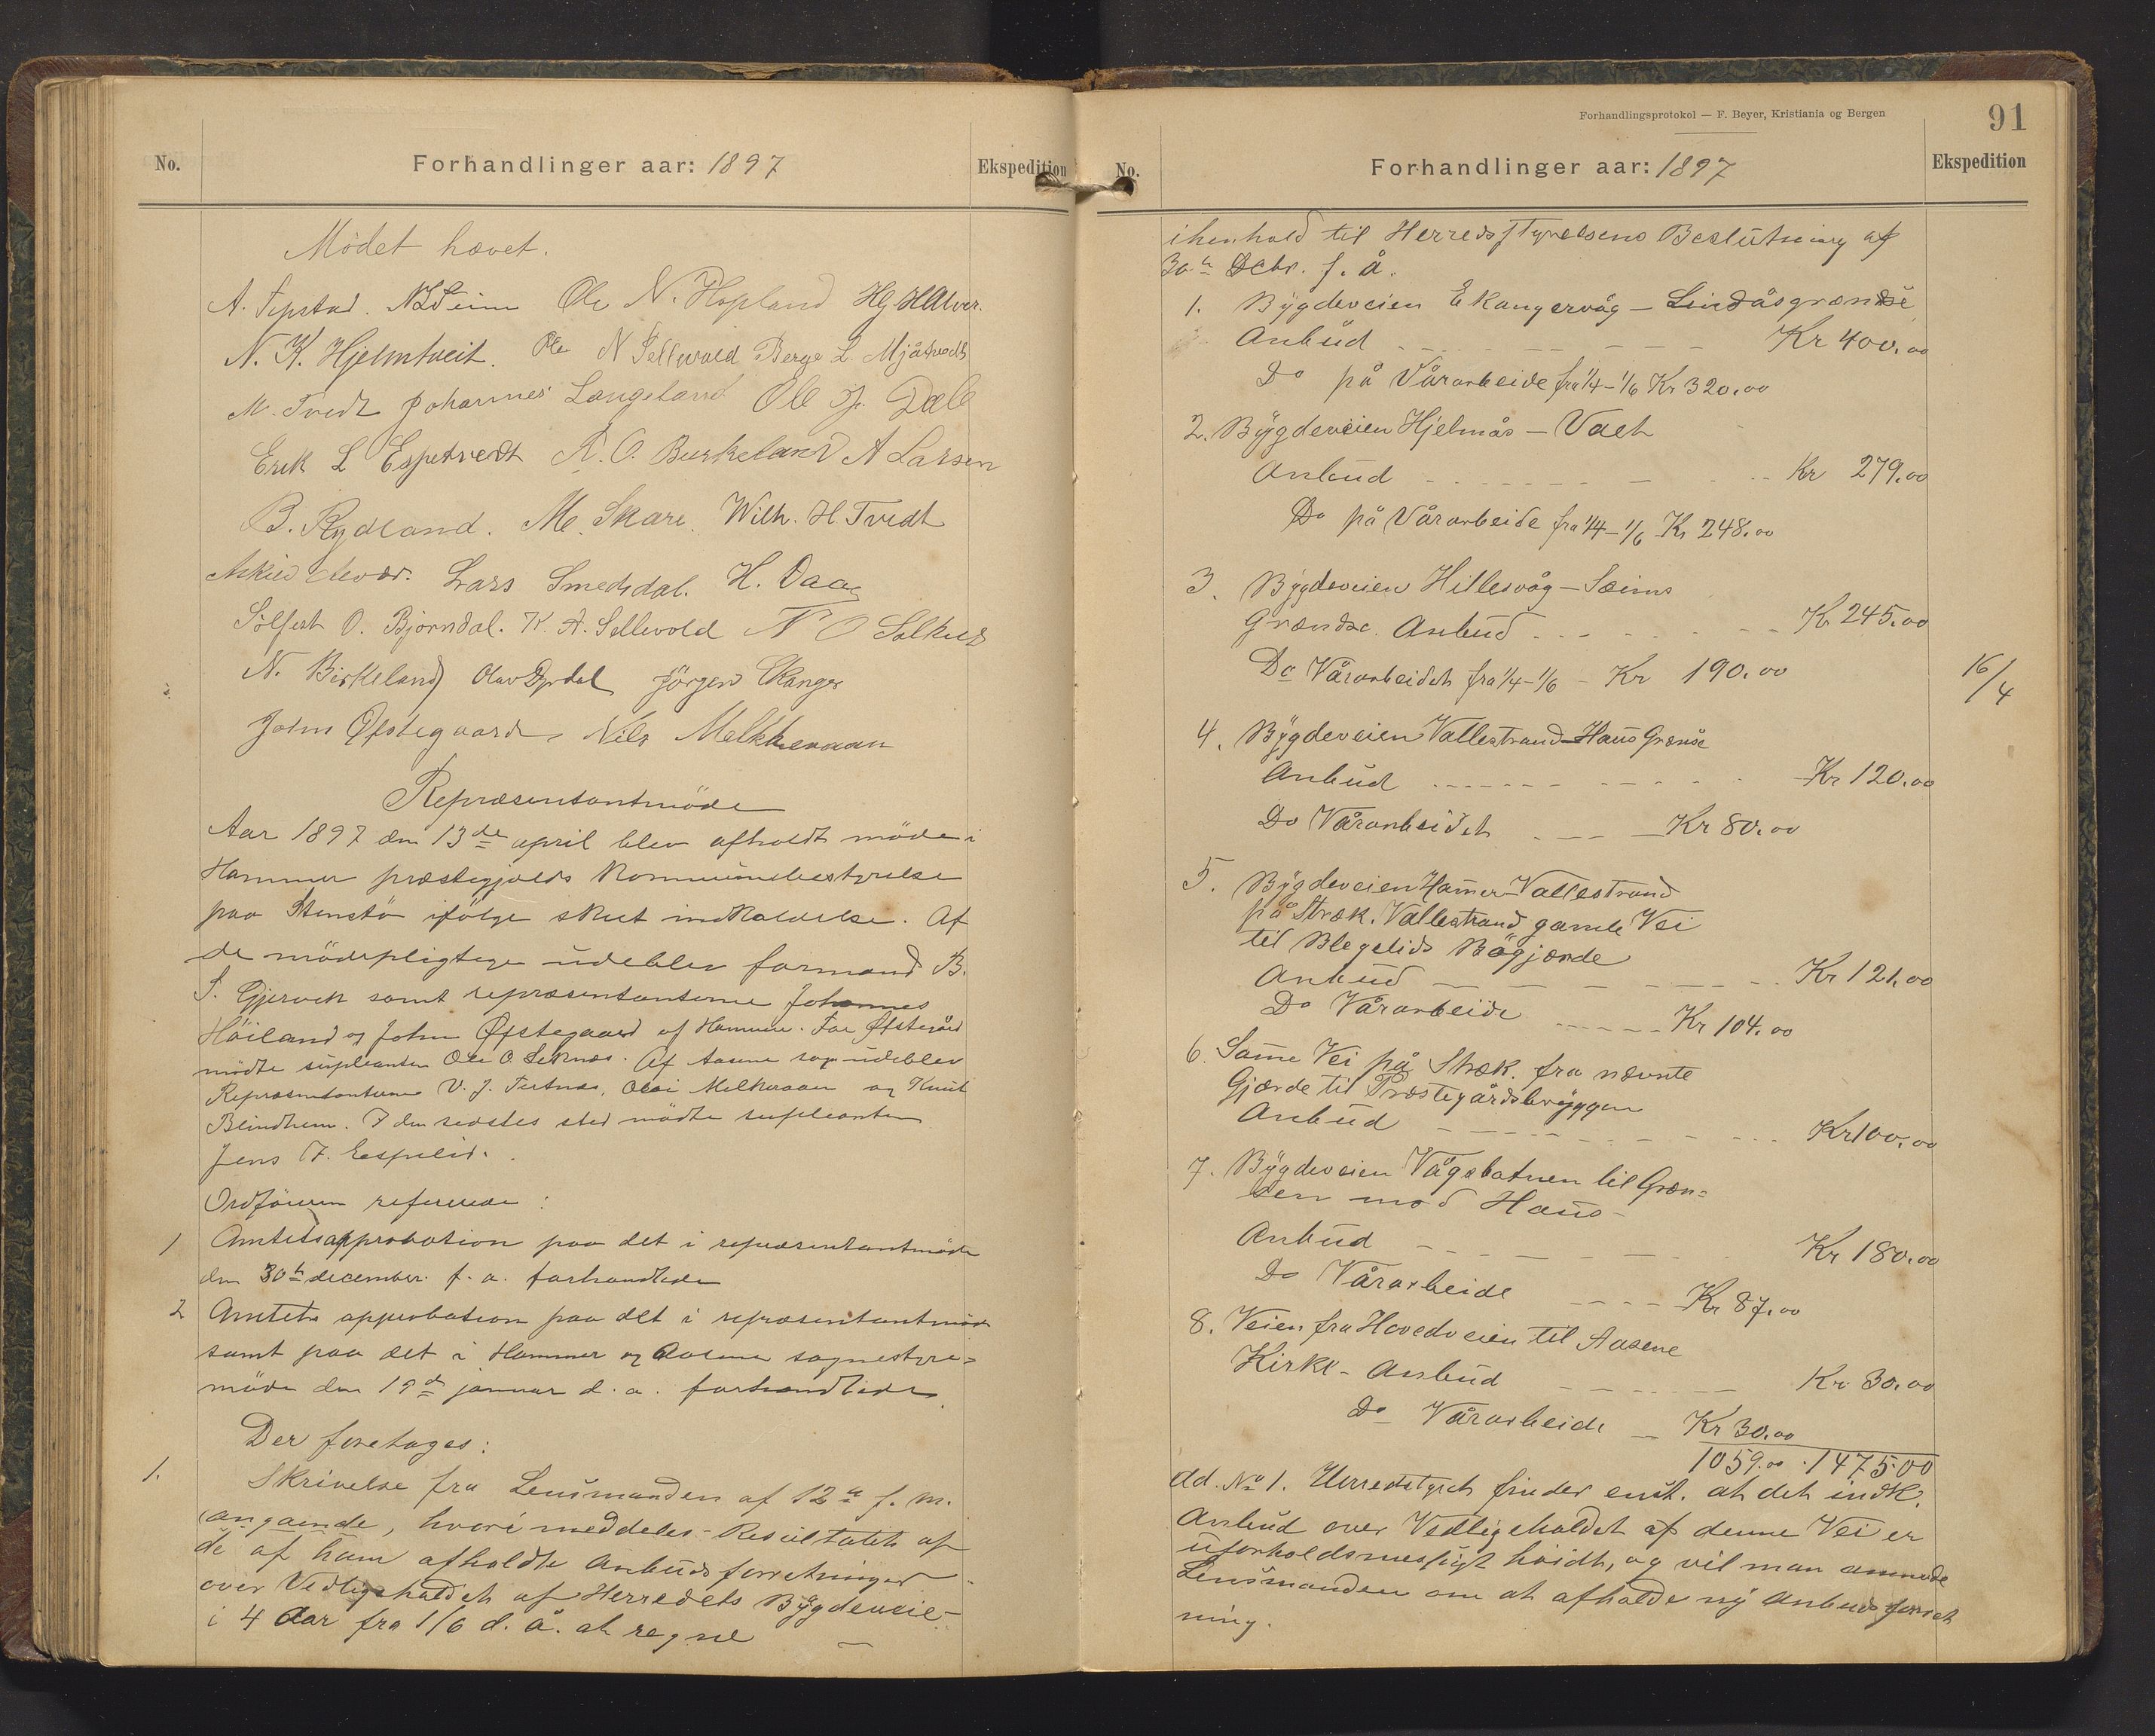 No.
Forhandlinger aar: 1897
Ekspedition
Mödet hævet.
Ole N. Hopland
N. K. Hjelmtveit. Ole N Sellevold Berge L. Mjåtvedt
M. Tvedt Johannes Langeland Ole J. Dale
Erik L Espetvedt R. O. Burkeland A Larsen
B. Rydland. M. Skare. Wilh. H. Tvedt
Lars Smedsdal. H. Daae
Sölfest O. Bjørndal. K. A. Sellevold N O
N. Birkeland Olav Dyrdal Jörgen Ekanger
John Øfstegaard, Nils Melkheraaen
Repræsentantmöde
Aar 1897 den 13de april blev afholdt möde i
Hammer præstegjelds Kommunebestyrelse
paa Stenstö ifölge skeet indkaldelse. Af
de mödepligtige udeblev formand B.
S. Gjervik samt repræsentanterne Johannes
Höiland og John Øfstegaard af Hammer. For Øfstegård
mödte supleanten Ole O Seknæs. Af Aasene sogn udeblev
Repræsentanterne V. J. Tertnæs, Olai Melkeraaen og Knut
Blindheim. I den sidstes sted mödte supleanten
Jens F. Espelid.
Ordföreren refererede:
1 Amtetsapprobation paa det i repræsentantmöde
den 30te december f. a. forhandlede
2 Amtets approbation paa det i repræsentantmöde
samt paa det i Hammer og Aasene sognestyre=
möde den 19de januar d. a. forhandlede.
Der foretages:
1. Skrivelse fra Lensmanden af 12te f. m.
angaaende, hvori meddeles Resultatet af
de af ham afholdte Anbudsforretninger
over Vedligeholdet af Herredets Bygdeveie
i 4 Aar fra 1/6 d. å. at regne
Forhandlingsprotokol — F. Beyer, Kristiania og Bergen
91
No.
Forhandlinger aar: 1897
Ekspedition
ihenhold til Herredsstyrelsens Beslutning af
30te Dcbr. f. å.
1. Bygdeveien Ekangervåg – Lindåsgrændse
Anbud Kr 400.00
Do på Vårarbeide fra 1/4–1/6 Kr 320.00
2. Bygdeveien Hjelmås – Valet
Anbud Kr 279.00
Do på Vårarbeide fra 1/4–1/6 Kr 248.00
3. Bygdeveien Hillesvåg – Sæims
Grændse. Anbud Kr 245.00
Do Vårarbeidet fra 1/4–1/6 – Kr 190.00
16/4
4. Bygdeveien Vallestrand–Haus Grænse
Anbud Kr 120.00
Do Vårarbeidet Kr 80.00
5. Bygdeveien Hamer–Vallestrand
på Stræk. Vallestrand gamle Vei
til Blegelids Bøgjærde
Anbud Kr 121.00
Do Vårarbeide Kr 104.00
6. Same Vei på Stræk. fra nævnte
Gjærde til Præstegårdsbryggen
Anbud Kr 100.00
7. Bygdeveien Vågsbotnen til Græn=
sen mod Haus
Anbud Kr 180.00
Do Vårarbeide Kr 87.00
8. Veien fra Hovedveien til Aasene
Kirke – Anbud Kr 30.00
Do Vårarbeide – Kr 30.00
1059.00 1475.00
Ad. No 1. Herredstyret finder enst. at det indk.
Anbud over Vedligeholdet af denne Vei er
uforholdsmessigt höidt, og vil man anmode
Lensmanden om at afholde ny Anbudsforret
ning.